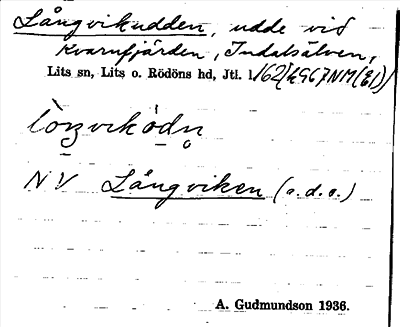 Långvikudden, udde vid
Kvarnfjärden, Indalsälven,
Lits sn, Lits o. Rödöns hd, Jtl.
NV Långviken (a.d.o.)
A. Gudmundson 1936.